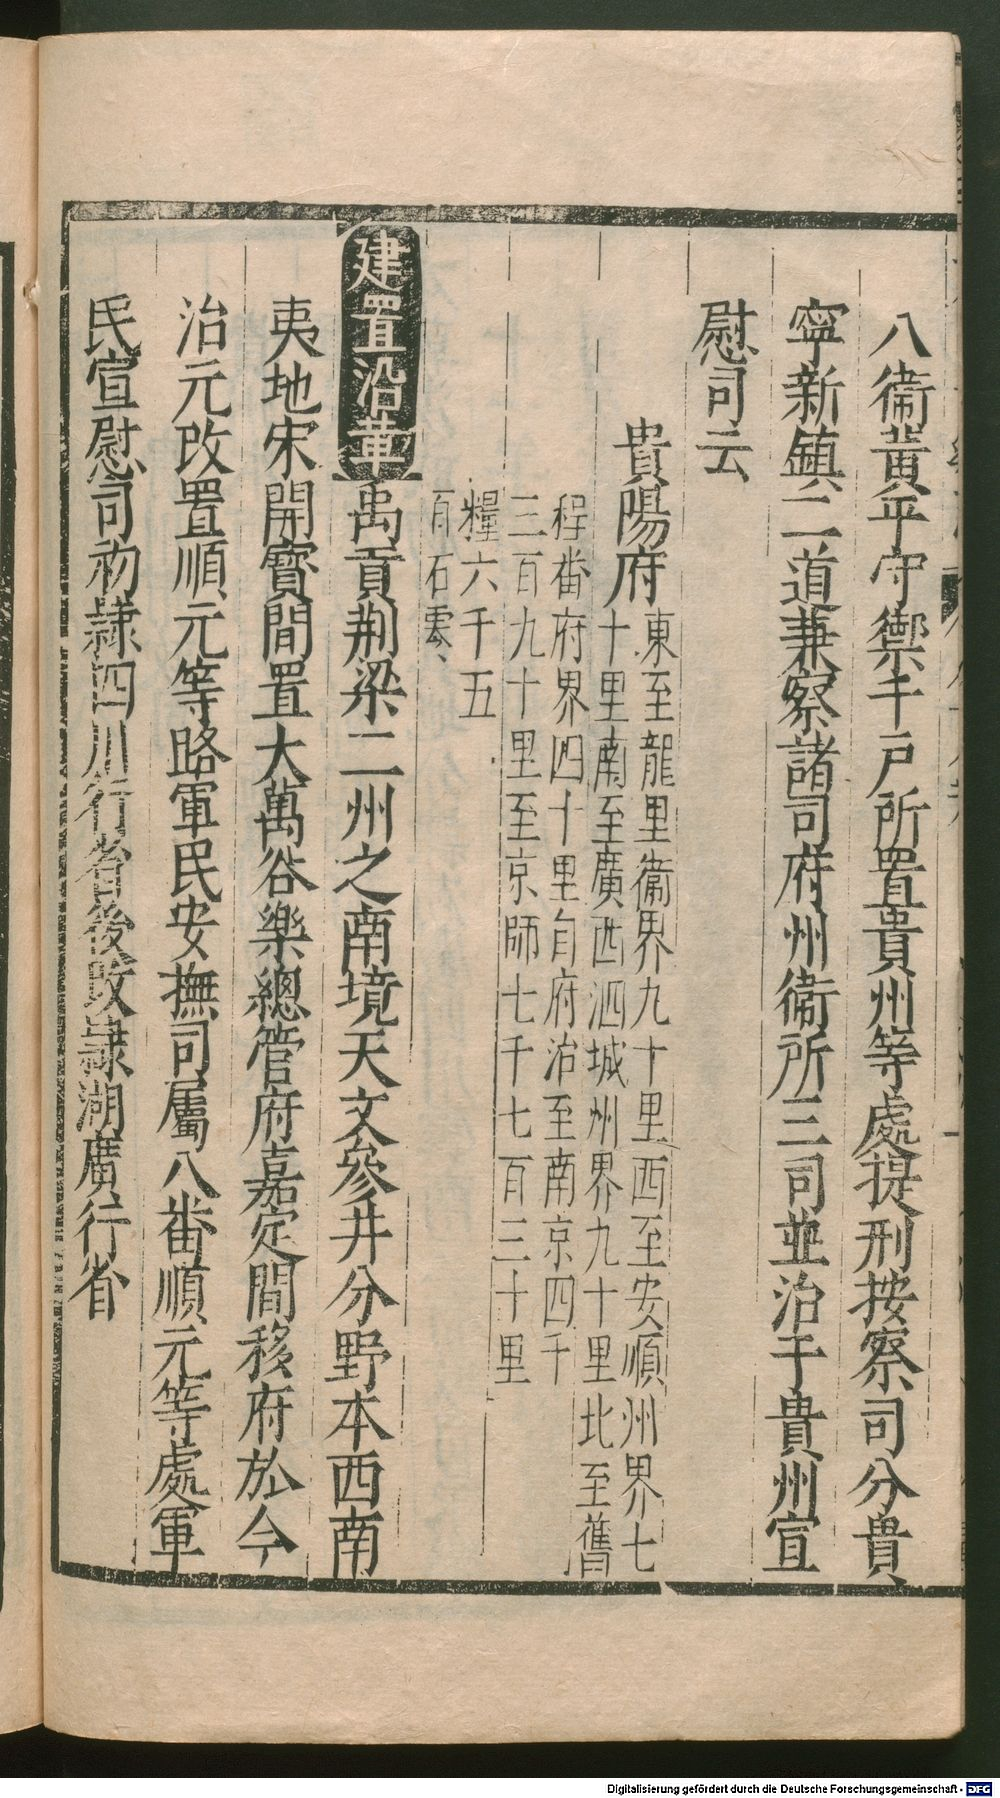 八衞黃平守禦千戶所置貴州等處提刑按察司分貴
寧新鎮二道兼察諸司府州衞所三司並治于貴州宣
慰司云
貴陽府
東至龍里衞界九十里西至安順州界七
十里南至廣西泗城州界九十里北至舊
程番府界四十里自府治至南京四千
三百九十里至京師七千七百三十里
糧六千五
百石零
建置沿革
禹貢荆梁二州之南境天文參井分野本西南
夷地宋開寳間置大萬谷樂總管府嘉定間移府於今
治元改置順元等路軍民安撫司屬八番順元等處軍
民宣慰司初隷四川行省後改隷湖廣行省
Digitalisierung gefördert durch die Deutsche Forschungsgemeinschaft - DFG